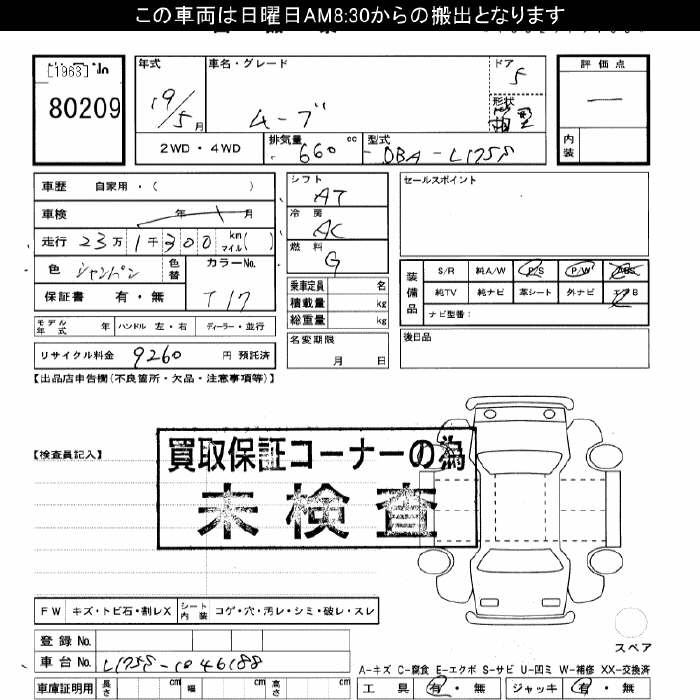 この車両は日曜日AM8:30からの搬出となります
[1963]
80209
年式
19/5月
車名・グレード
ムーブ
ドア
5
形状
箱型
評価点
―
内装
2WD・4WD
排気量
660 cc
型式
DBA-L175S
車歴 自家用・( )
車検 年 月
走行 23万1千300 km マイル( )
色 シャンパン 色替
カラーNo.
T17
保証書 有・無
モデル年式 年 ハンドル 左・右 ディーラー・並行
リサイクル料金 9260 円 預託済
シフト
AT
冷房
AC
燃料
G
乗車定員 名
積載量 kg
総重量 kg
名変期限
月 日
セールスポイント
装備品
S/R 純A/W P/S P/W ABS
純TV 純ナビ 革シート 外ナビ エアB
ナビ型番:
後日品
【出品店申告欄(不良箇所・欠品・注意事項等)】
【検査員記入】
買取保証コーナーの為
未検査
FW キズ・トビ石・割レX シート内装 コゲ・穴・汚レ・シミ・破レ・スレ
登録 No.
車台 No. L175S-1046188
車庫証明用 長さ cm 幅 cm 高さ cm
スペア
A-キズ C-腐食 E-エクボ S-サビ U-凹ミ W-補修 XX-交換済
工具 有・無 ジャッキ 有・無